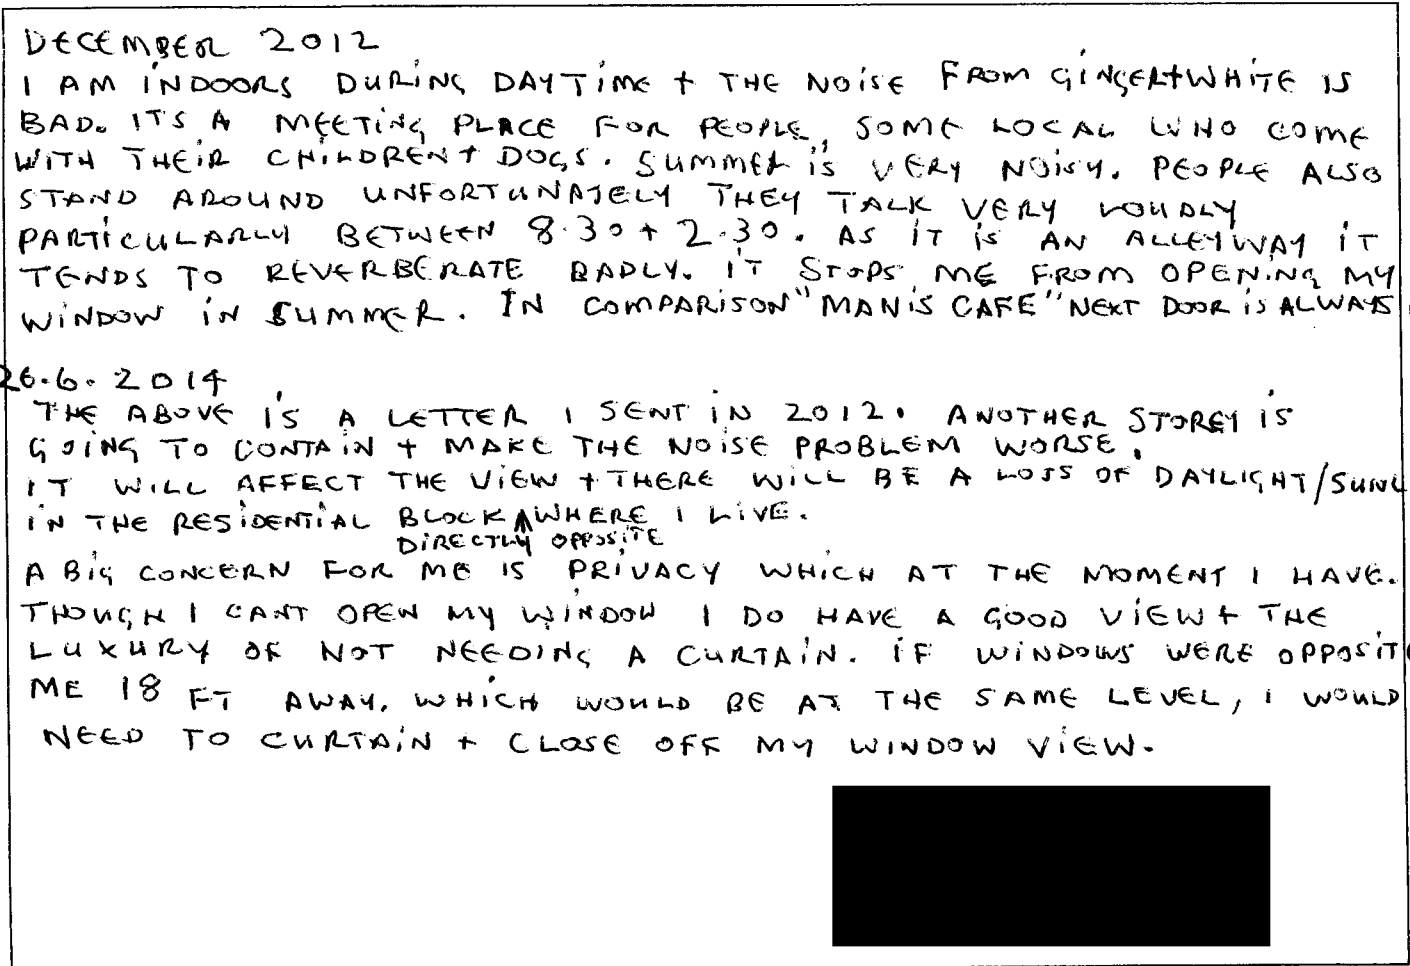 DECEMBER 2012
I AM INDOORS DURING DAYTIME + THE NOISE FROM GINGER+WHITE IS
BAD. ITS A MEETING PLACE FOR PEOPLE, SOME LOCAL WHO COME
WITH THEIR CHILDREN + DOGS. SUMMER IS VERY NOISY. PEOPLE ALSO
STAND AROUND UNFORTUNATELY THEY TALK VERY LOUDLY
PARTICULARLY BETWEEN 8.30 + 2.30. AS IT IS AN ALLEYWAY IT
TENDS TO REVERBERATE BADLY. IT STOPS ME FROM OPENING MY
WINDOW IN SUMMER. IN COMPARISON "MANIS CAFE" NEXT DOOR IS ALWAYS
26.6.2014
THE ABOVE IS A LETTER I SENT IN 2012. ANOTHER STOREY IS
GOING TO CONTAIN + MAKE THE NOISE PROBLEM WORSE.
IT WILL AFFECT THE VIEW + THERE WILL BE A LOSS OF DAYLIGHT/SUNL
IN THE RESIDENTIAL BLOCK WHERE I LIVE.
DIRECTLY OPPOSITE
A BIG CONCERN FOR ME IS PRIVACY WHICH AT THE MOMENT I HAVE.
THOUGH I CANT OPEN MY WINDOW I DO HAVE A GOOD VIEW + THE
LUXURY OF NOT NEEDING A CURTAIN. IF WINDOWS WERE OPPOSITE
ME 18 FT AWAY, WHICH WOULD BE AT THE SAME LEVEL, I WOULD
NEED TO CURTAIN + CLOSE OFF MY WINDOW VIEW.